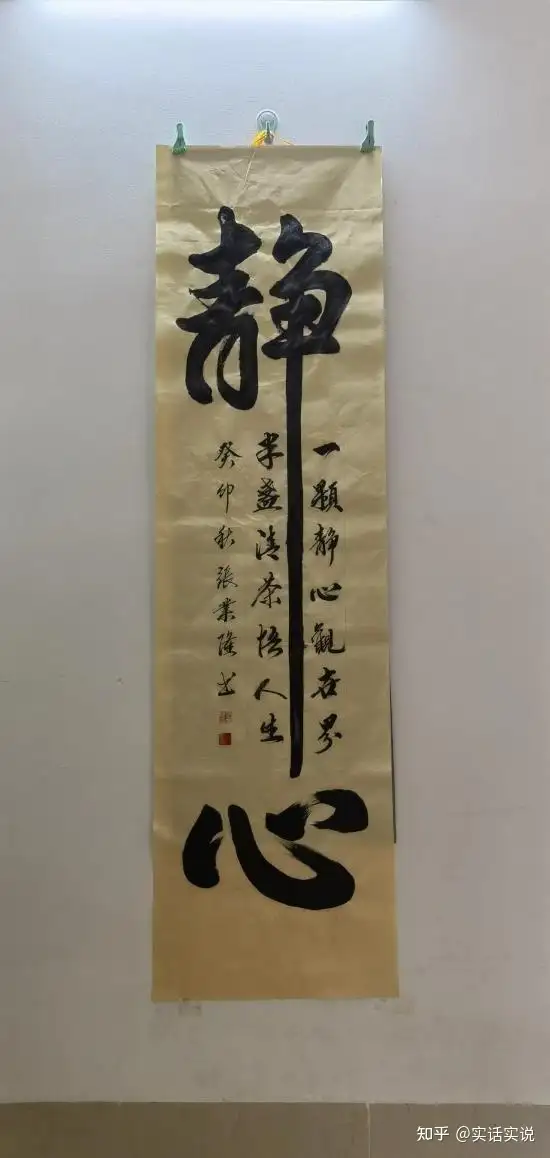 静心
一颗静心觀世界
半盏清茶悟人生
癸卯秋張業隆书
知乎 @实话实说